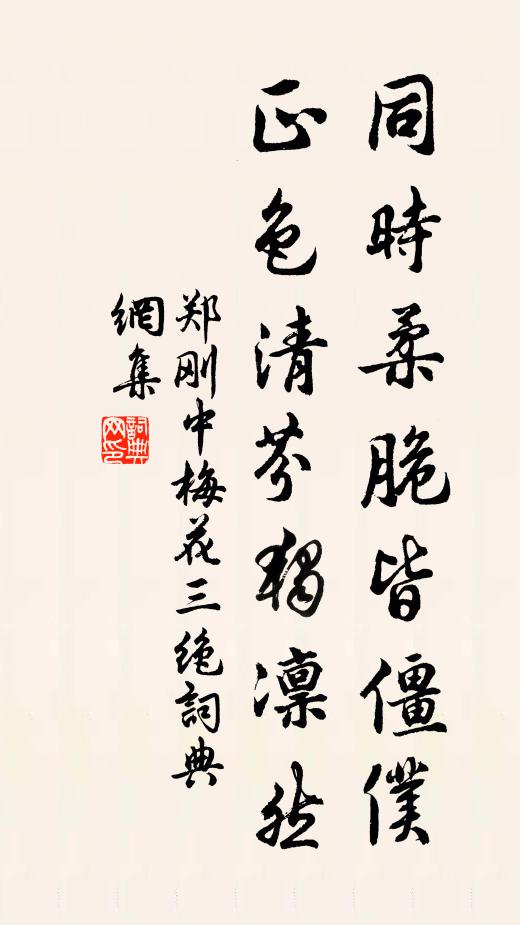 同時柔脆皆僵僕
正色清芬獨凛然
郑刚中梅花三绝詞典
網集
詞典網印